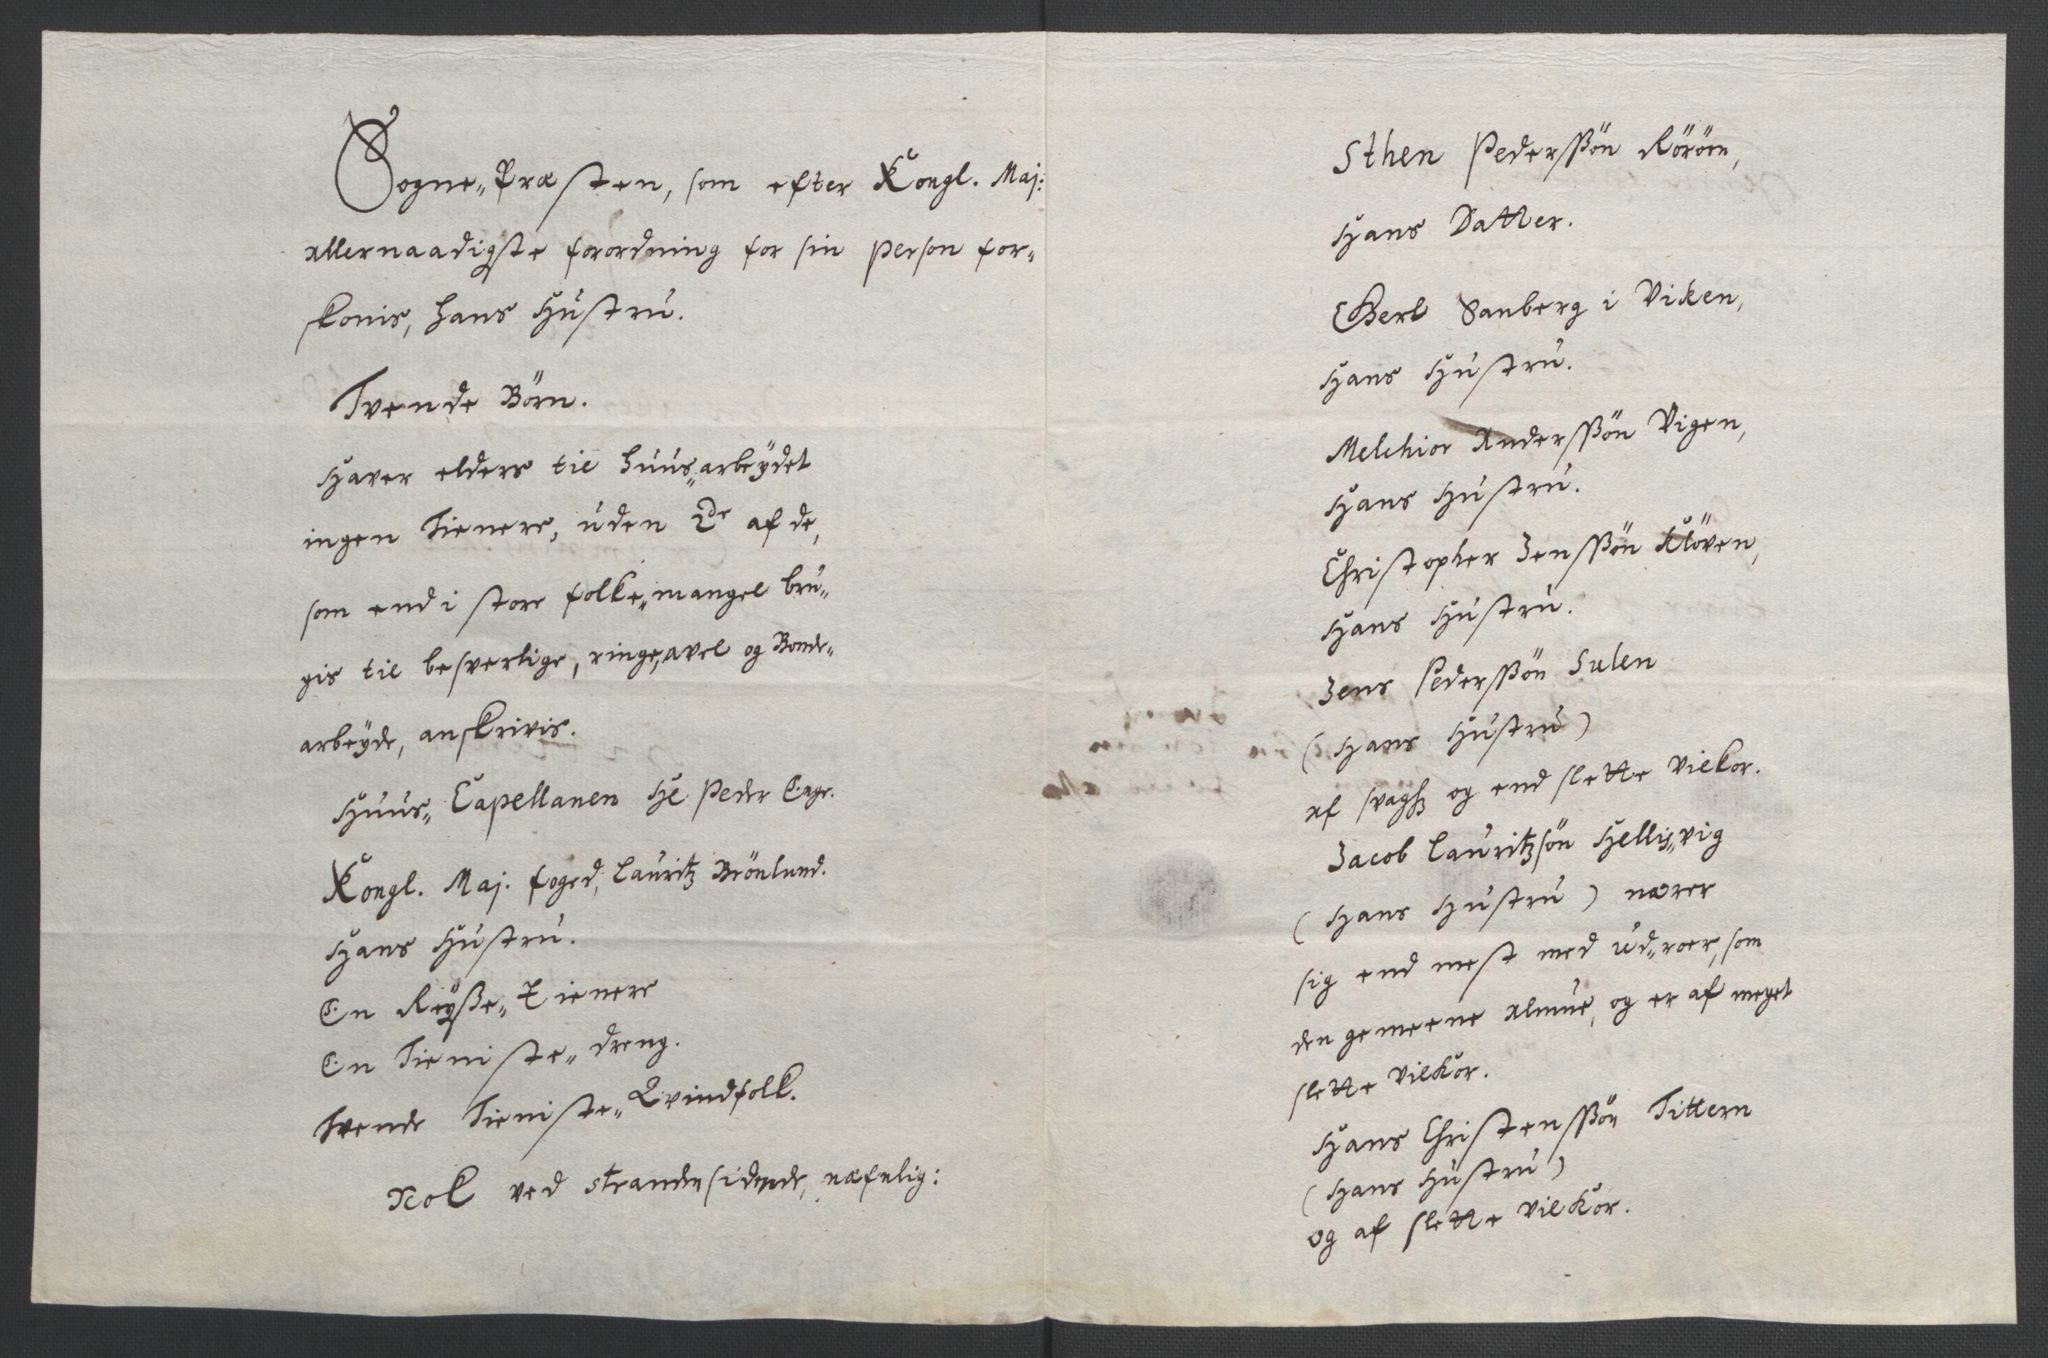 Sogne„Præsten, som efter Kongl. Maj:
allernaadigste forordning for sin person for„
skonis, hans Hústrú.
Tvende Börn.
Haver elders til húús„arbeÿdet
ingen Tienere, úden 2de af de,
som end i store folke„mangel brú„
gis til besverlige, ringe„avel og Bonde„
arbeÿde, anskrivis.
Húús„ Capellanen He Peder
Kongl. Maj. foged, Laúritz Brönlund.
Hans Hústrú.
En Reÿsse„Tienere
En Tieniste„ dreng.
Tvende Tieniste„Qvindfolk.
Nok ved strandensidende, næfnlig:
Sthen Pederssön Röröen,
Hans Datter.
Gert Sanberg i Viken,
Hans Hústrú.
Melchior Anderssön Vigen,
Hans Hústrú.
Christopher Jenssön Klöven,
Hans Hústrú.
Jens Pederssön Sulen
(Hans Hústrú)
af svagh og end slette vilkor.
Jacob Laúritzsön Hellis„vig
(Hans Hústrú) nærer
sig end mest med úd„roer, som
den gemeene almúe, og er af meget
slette vilkor.
Hans Christenssön Tittern
(Hans Hústrú)
og af slette vilkor.